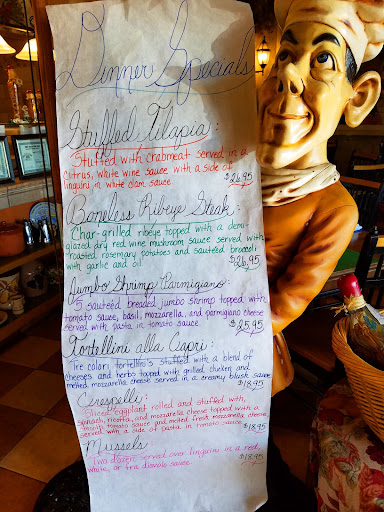 Dinner Specials
Stuffed Tilapia:
Stuffed with crabmeat served in a
citrus, white wine sauce with a side of
linguini in white clam sauce $26.95
Boneless Ribeye Steak:
Char-grilled ribeye topped with a demi-
glazed dry red wine mushroom sauce served with
roasted rosemary potatoes and sauteéd broccoli
with garlic and oil $26.95
Jumbo Shrimp Parmigiano:
5 sauteéd breaded jumbo shrimp topped with
tomato sauce, basil, mozzarella, and parmigiano cheese
served with pasta in tomato sauce $25.95
Tortellini alla Capri:
Tre colori tortellini's stuffed with a blend of
cheeses and herbs topped with grilled chicken and
melted mozzarella cheese served in a creamy blush sauce
$18.95
Crespelli:
Sliced eggplant rolled and stuffed with,
spinach, ricotta, and mozzarella cheese topped with a
tomato sauce and melted fresh mozzarella cheese
served with a side of pasta in tomato sauce $18.95
Mussels
Two dozen served over linguini in a red,
white, or fra diavolo sauce. $18.95